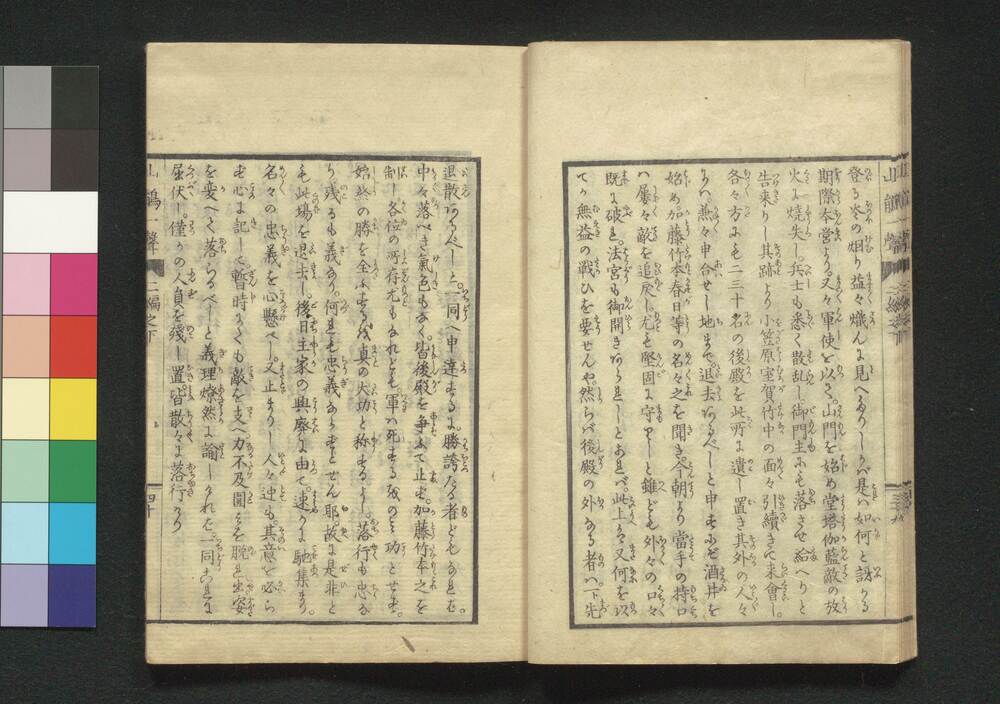 登る冬の烟り益々熾んに見へたりしかバ是ハ如何と訝かる
期際本営よりも又々軍使を以て山門を始め堂塔伽藍敵の放
火に焼失し。兵士も悉く散乱し御門主にも落させ給へりと
告来りし其跡より小笠原室賀竹中の面々引續きて来會し。
各々方にも二三十名の後殿を此所に遺し置き其外の人々
にハ。兼々申合せし地まで退去あるべしと申すにぞ酒井を
始め加藤竹本春日等の名々之を聞き。今朝より當手の持口
ハ屡々敵を追戻し尤も堅固に守りしと雖ども外々の口々
既に破れ。法宮も御開きあられしとあれバ。此上ハ又何を以
てか無益の戦ひを要せんや。然らバ後殿の外なる者ハ一ト先
退散あるべしと。一同へ申達するに勝誇たる者どもなれば。
中々落べき氣色もなく。皆後殿を争ふて止む。加藤竹本之を
制し各位の所存尤もなれども。軍ハ死するをのミ功とせず。
始終の勝を全ふするを真の大功と称するよし。落行も忠な
り残るも義なり。何れも忠義ならずとせん耶。故に是非と
も此場を退去し。後日主家の興廃に由て。速かに馳集まり。
名々の忠義を心懸べし。又止まりし人々迚も。其意を必ら
ず心に記して暫時なくも敵を支へ力不及圍ミを脱れ出。安
を変へて落らるべしと義理燎然に諭しければ一同これに
屈伏し。僅かの人員を殘し置皆散々に落行たり
山鵑一聲
二編之下
四十